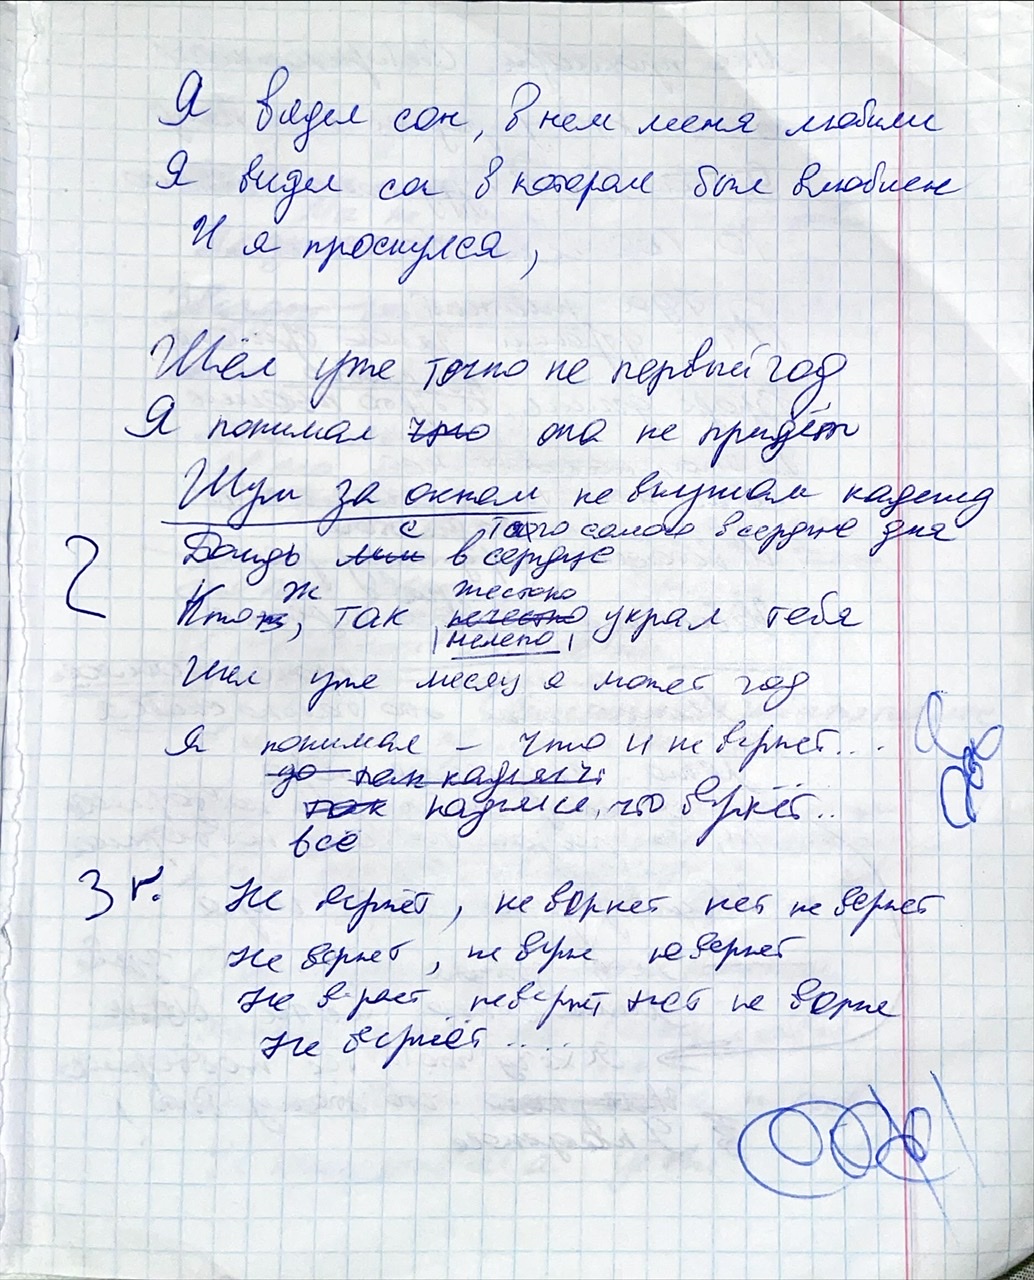 Я видел сон, в нем меня любили
Я видел сон в котором был влюблен
И я проснулся,
Шёл уже точно не первый год
Я понимал что она не придёт
Шум за окном не внушал надежд
с того самого в сердце дня
2 Дождь в сердце
ж жестоко
Кто, так нечестно украл тебя
нелепо
Шел уже месяц а может год
Я понимал – что и не вернет...
до надеялся
так надеялся, что вернёт..
всё
3 г. Не вернёт, не вернет нет не вернет
Не вернет, не верне не вернет
Не вернет не вернёт нет не верне
Не вернёт ....